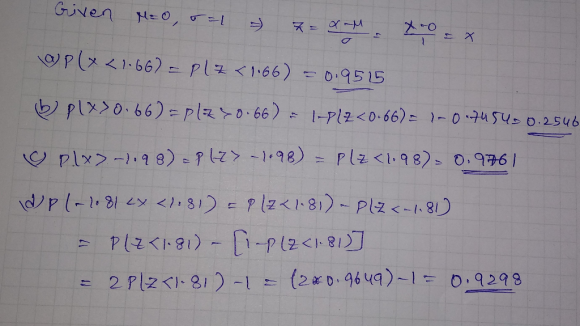 Given μ=0, σ=1 ⇒ z = (x-μ)/σ = (x-0)/1 = x
(a) P(x<1.66) = P(z<1.66) = 0.9515
(b) P(x>0.66) = P(z>0.66) = 1-P(z<0.66) = 1-0.7454 = 0.2546
(c) P(x>-1.98) = P(z>-1.98) = P(z<1.98) = 0.9761
(d) P(-1.81<x<1.81) = P(z<1.81) - P(z<-1.81)
= P(z<1.81) - [1-P(z<1.81)]
= 2P(z<1.81) -1 = (2*0.9649)-1 = 0.9298